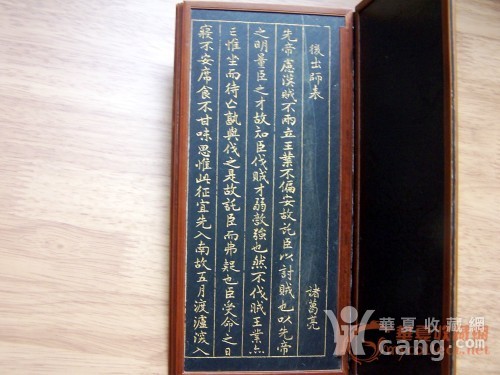 後出師表
諸葛亮
先帝慮漢賊不兩立王業不偏安故託臣以討賊也以先帝
之明量臣之才故知臣伐賊才弱敵強也然不伐賊王業亦
亡惟坐而待亡孰與伐之是故託臣而弗疑也臣受命之日
寢不安席食不甘味思惟北征宜先入南故五月渡瀘深入
华夏收藏网
cang.com